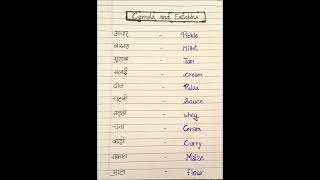 Cereals and Eatables
अचार - Pickle
बाजरा - Millet
मुरब्बा - Jam
मलाई - cream
दाल - Pulse
चटनी - Sauce
मट्ठा - whey
चना - Gram
कढ़ी - Curry
- Maize
आटा - Flour